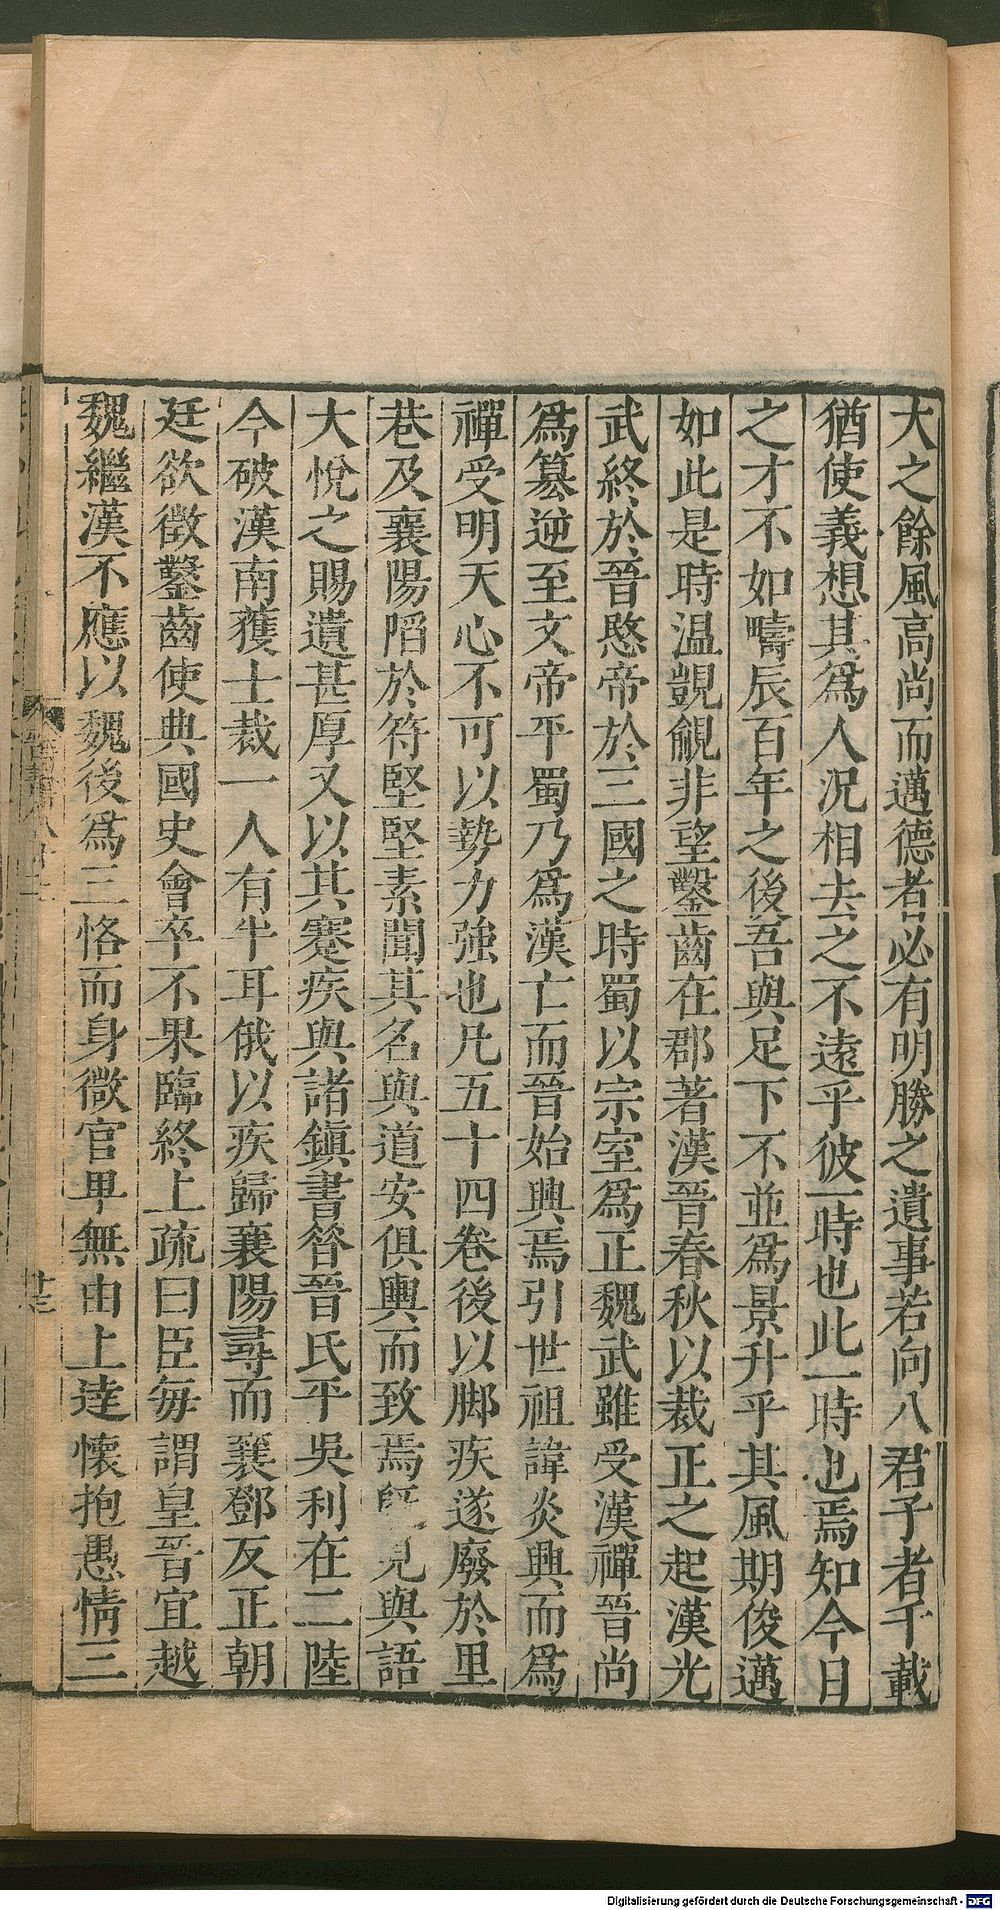 大之餘風高尚而邁德者必有明勝之遺事若向八君子者千載
猶使義想其爲人況相去之不遠乎彼一時也此一時也焉知今日
之才不如疇辰百年之後吾與足下不並爲景升乎其風期俊邁
如此是時温覬覦非望鑿齒在郡著漢晉春秋以裁正之起漢光
武終於晉愍帝於三國之時蜀以宗室爲正魏武雖受漢禪晉尚
爲篡逆至文帝平蜀乃爲漢亡而晉始興焉引世祖諱炎興而爲
禪受明天心不可以勢力強也凡五十四卷後以脚疾遂廢於里
巷及襄陽陷於符堅堅素聞其名與道安俱輿而致焉既見與語
大悅之賜遺甚厚又以其蹇疾與諸鎮書昝晉氏平吳利在二陸
今破漢南獲士裁一人有半耳俄以疾歸襄陽尋而襄鄧反正朝
廷欲徵鑿齒使典國史會卒不果臨終上疏曰臣每謂皇晉宜越
魏繼漢不應以魏後爲三恪而身微官卑無由上達懷抱愚情三
晉書八十二
Digitalisierung gefördert durch die Deutsche Forschungsgemeinschaft - DFG